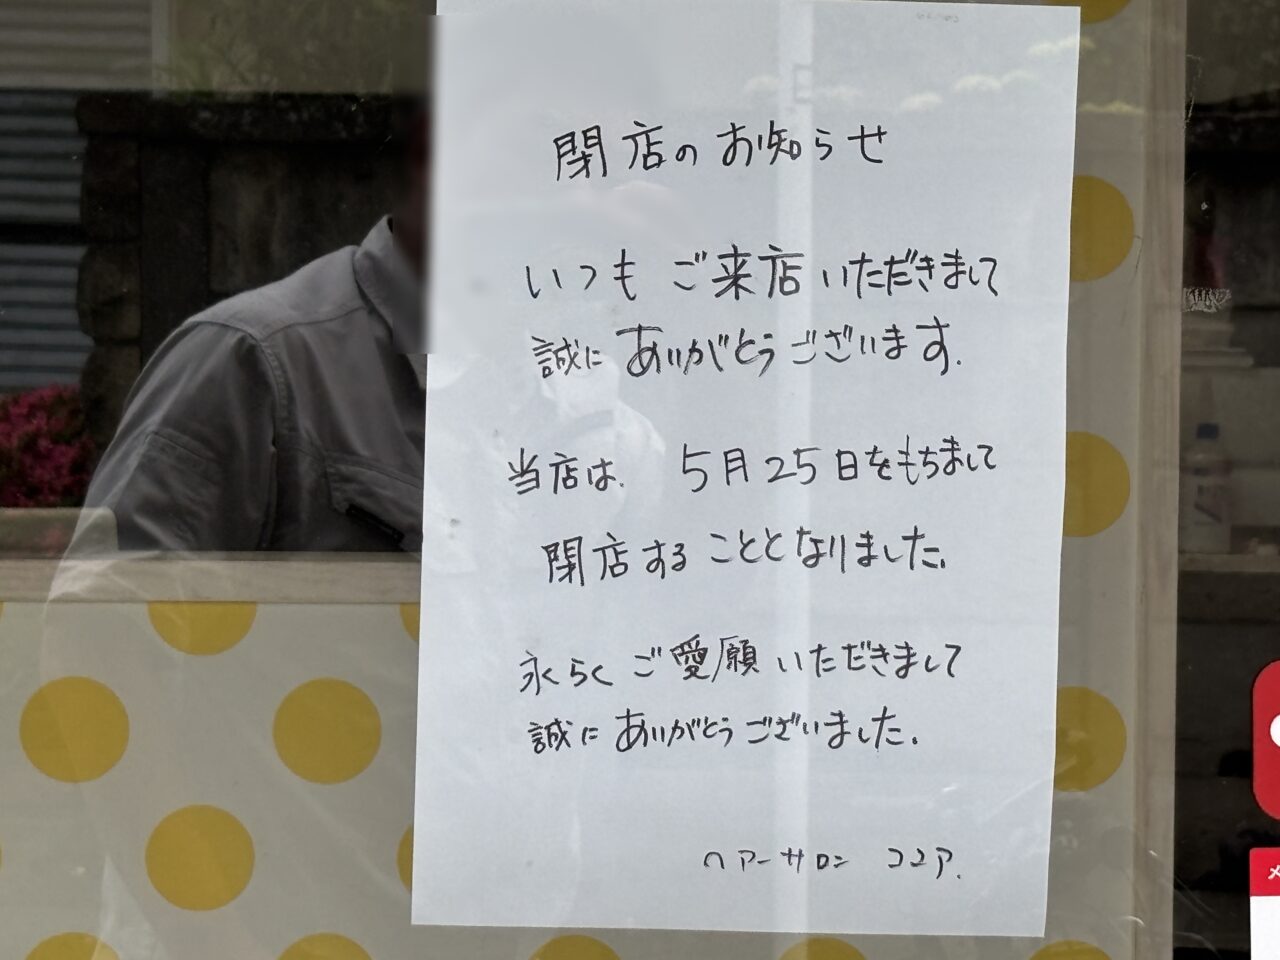 閉店のお知らせ
いつも ご来店いただきまして
誠に ありがとうございます.
当店は、 5月25日をもちまして
閉店する こととなりました.
永らく ご愛願いただきまして
誠に ありがとうございました.
ヘアーサロン ココア.
メ